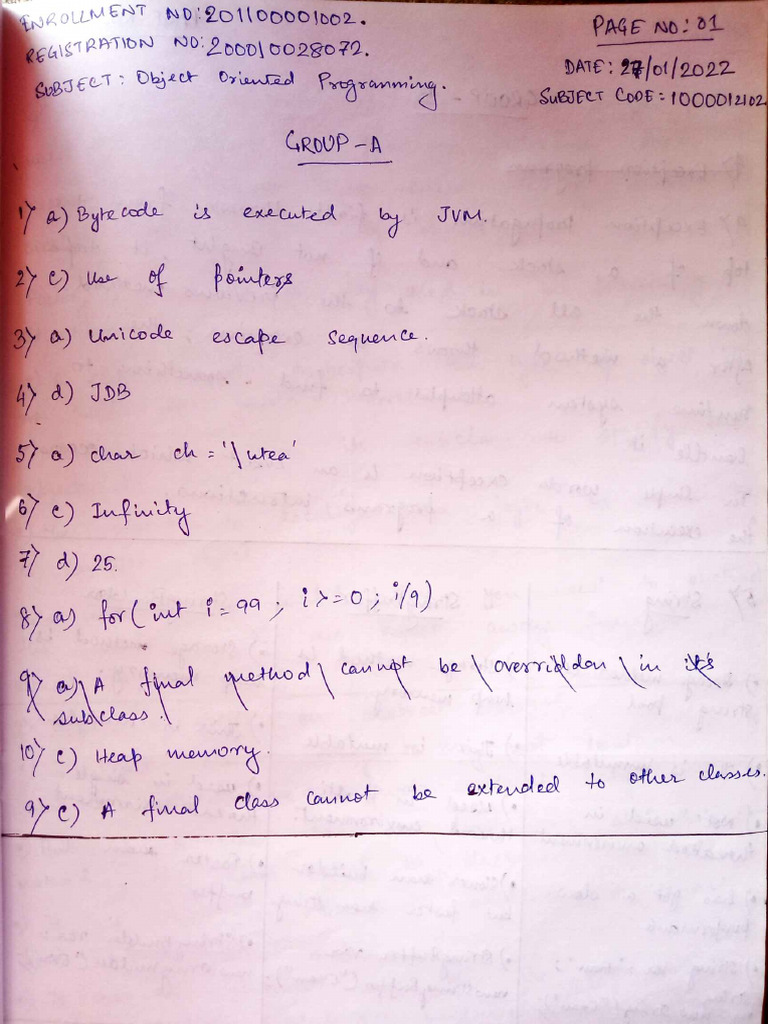 ENROLLMENT NO: 201100001002.
PAGE NO: 01
REGISTRATION NO: 200010028072.
DATE: 27/01/2022
SUBJECT: Object Oriented Programming.
SUBJECT CODE = 1000012102
GROUP-A
1) a) Bytecode is executed by JVM.
2) c) Use of pointers
3) a) Unicode escape sequence.
4) d) JDB
5) a) char ch = '\utea'
6) c) Infinity
7) d) 25.
8) a) for(int i = 99; i >= 0; i/9)
9) a) A final method cannot be overridden in it's
subclass.
10) c) Heap memory.
9) c) A final class cannot be extended to other classes.